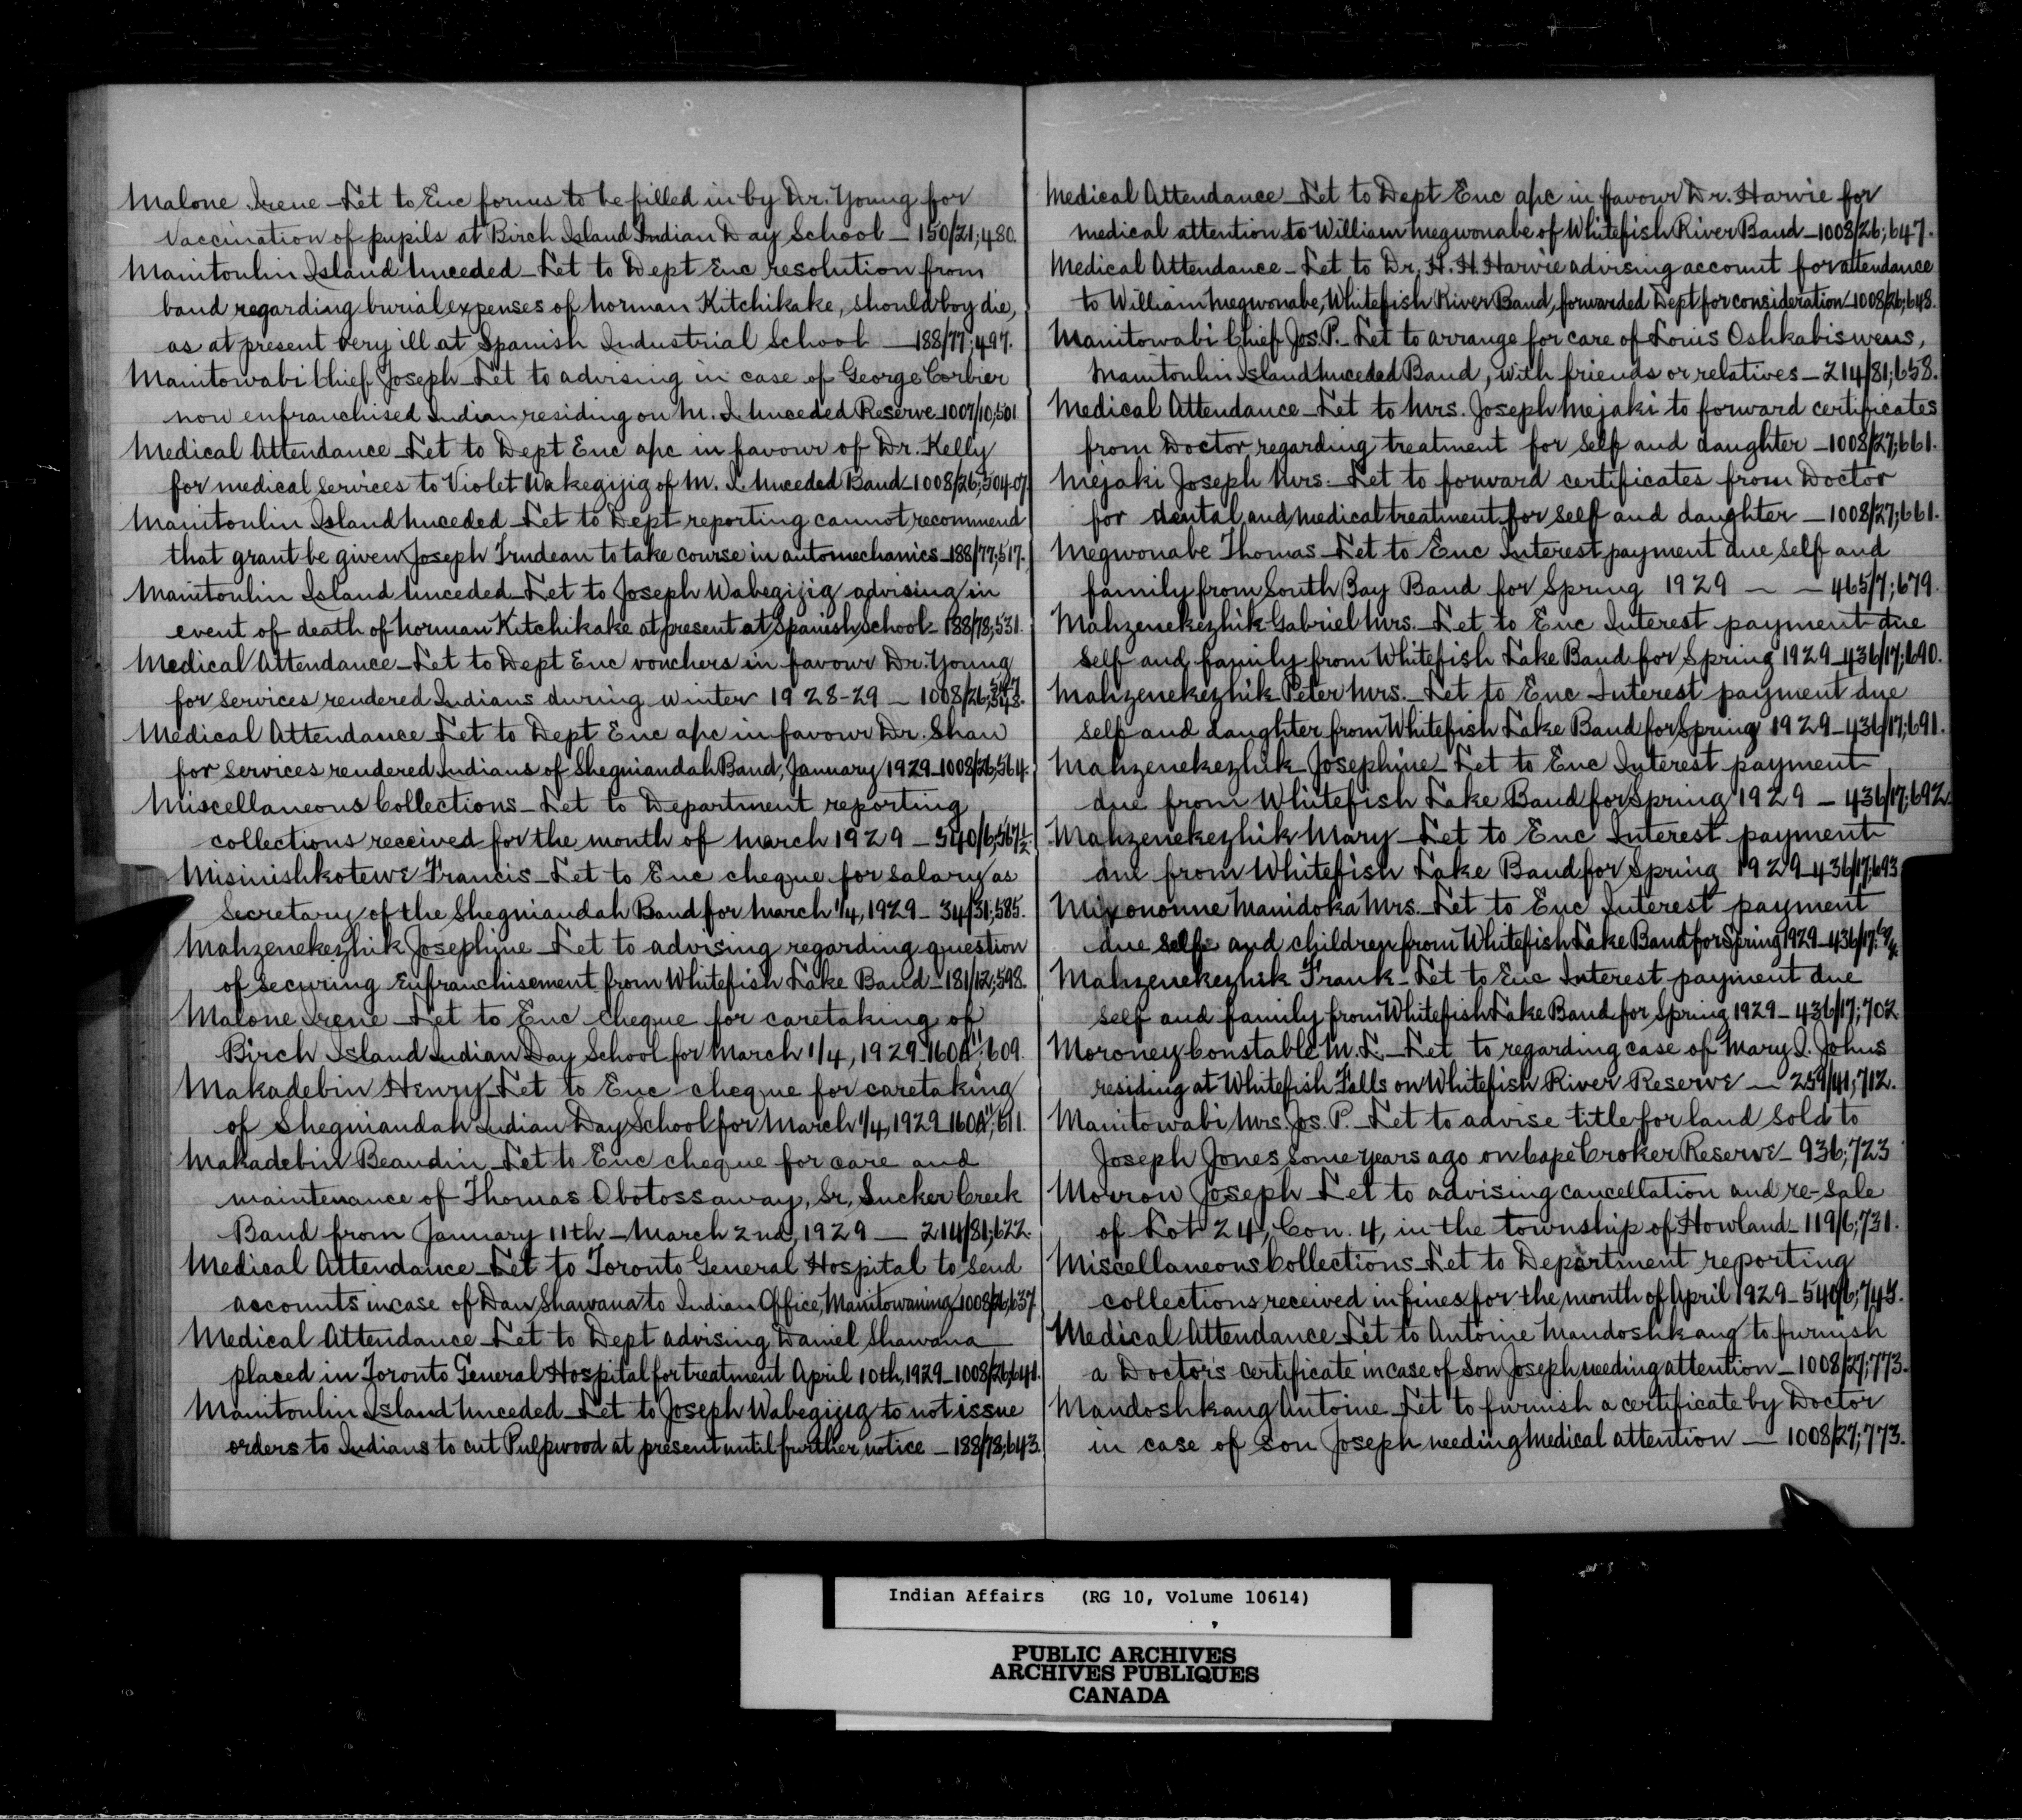 Malone Irene - Let to Enc forms to be filled in by Dr. Young for
vaccination of pupils at Birch Island Indian Day School - 150/21; 480.
Manitoulin Island Unceded - Let to Dept Enc resolution from
band regarding burial expenses of Norman Kitchikake, should boy die,
as at present very ill at Spanish Industrial School - 188/77; 497.
Manitowabi Chief Joseph - Let to advising in case of George Corbier
now enfranchised Indian residing on M. I. Unceded Reserve - 1007/10; 501
Medical Attendance - Let to Dept Enc a/c in favour of Dr. Kelly
for medical services to Violet Wakegijig of M. I. Unceded Band - 1008/26; 504-07.
Manitoulin Island Unceded - Let to Dept reporting cannot recommend
that grant be given Joseph Trudeau to take course in automechanics - 188/77; 517.
Manitoulin Island Unceded - Let to Joseph Wabegijig advising in
event of death of Norman Kitchikake at present at Spanish School - 188/78; 531.
Medical Attendance - Let to Dept Enc vouchers in favour Dr. Young
for services rendered Indians during winter 1928-29 - 1008/26;
Medical Attendance - Let to Dept Enc a/c in favour Dr. Shaw
for services rendered Indians of Sheguiandah Band, January 1929 - 1008/26; 564.
Miscellaneous Collections - Let to Department reporting
collections received for the month of March 1929 - 540/6; 567½
Misinishkotewe Francis - Let to Enc cheque for salary as
Secretary of the Sheguiandah Band for March 1/4, 1929 - 34/31; 585.
Mahzenekezhik Josephine - Let to advising regarding question
of securing Enfranchisement from Whitefish Lake Band - 181/12; 598.
Malone Irene - Let to Enc cheque for caretaking of
Birch Island Indian Day School for March 1/4, 1929 - 160A"; 609.
Makadebin Henry - Let to Enc cheque for caretaking
of Sheguiandah Indian Day School for March 1/4, 1929 - 160A"; 611.
Makadebin Beaudin - Let to Enc cheque for care and
maintenance of Thomas Obotossaway, Sr., Sucker Creek
Band from January 11th - March 2nd, 1929 - 214/81; 622.
Medical Attendance - Let to Toronto General Hospital to send
accounts in case of Dan Shawana to Indian Office, Manitowaning 1008/26; 637
Medical Attendance - Let to Dept advising Daniel Shawana
placed in Toronto General Hospital for treatment April 10th, 1929 - 1008/26; 641.
Manitoulin Island Unceded - Let to Joseph Wabegijig to not issue
orders to Indians to cut Pulpwood at present until further notice - 188/78; 643.
Medical Attendance - Let to Dept Enc a/c in favour Dr. Harvie for
medical attention to William Megwonabe of Whitefish River Band - 1008/26; 647.
Medical Attendance - Let to Dr. H. H. Harvie advising account for attendance
to William Megwonabe, Whitefish River Band, forwarded Dept for consideration - 1008/26; 648.
Manitowabi Chief Jos. P. - Let to arrange for care of Louis Oshkabiswens,
Manitoulin Island Unceded Band, with friends or relatives - 214/81; 658.
Medical Attendance - Let to Mrs. Joseph Mejaki to forward certificates
from Doctor regarding treatment for self and daughter - 1008/27; 661.
Mejaki Joseph Mrs. - Let to forward certificates from Doctor
for dental and medical treatment for self and daughter - 1008/27; 661.
Megwonabe Thomas - Let to Enc Interest payment due self and
family from South Bay Band for Spring 1929 - - 465/7; 679.
Mahzenekezhik Gabriel Mrs. - Let to Enc Interest payment due
self and family from Whitefish Lake Band for Spring 1929 - 436/17; 690.
Mahzenekezhik Peter Mrs. - Let to Enc Interest payment due
self and daughter from Whitefish Lake Band for Spring 1929 - 436/17; 691.
Mahzenekezhik Josephine - Let to Enc Interest payment
due from Whitefish Lake Band for Spring 1929 - 436/17; 692.
Mahzenekezhik Mary - Let to Enc Interest payment
due from Whitefish Lake Band for Spring 1929 - 436/17; 693
Mixononne Manidoka Mrs. - Let to Enc Interest payment
due self and children from Whitefish Lake Band for Spring 1929 - 436/17;
Mahzenekezhik Frank - Let to Enc Interest payment due
self and family from Whitefish Lake Band for Spring 1929 - 436/17; 702
Moroney Constable M. L. - Let to regarding case of Mary I. Johns
residing at Whitefish Falls on Whitefish River Reserve - 259/41; 712.
Manitowabi Mrs. Jos. P. - Let to advise title for land sold to
Joseph Jones some years ago on Cape Croker Reserve - 936; 723
Morrow Joseph - Let to advising cancellation and re-sale
of Lot 24, Con. 4, in the township of Howland - 119/6; 731.
Miscellaneous Collections - Let to Department reporting
collections received in fines for the month of April 1929 - 540/6; 743.
Medical Attendance - Let to Antoine Mandoshkang to furnish
a Doctor's certificate in case of son Joseph needing attention - 1008/27; 773.
Mandoshkang Antoine - Let to furnish a certificate by Doctor
in case of son Joseph needing medical attention - 1008/27; 773.
Indian Affairs (RG 10, Volume 10614)
PUBLIC ARCHIVES
ARCHIVES PUBLIQUES
CANADA